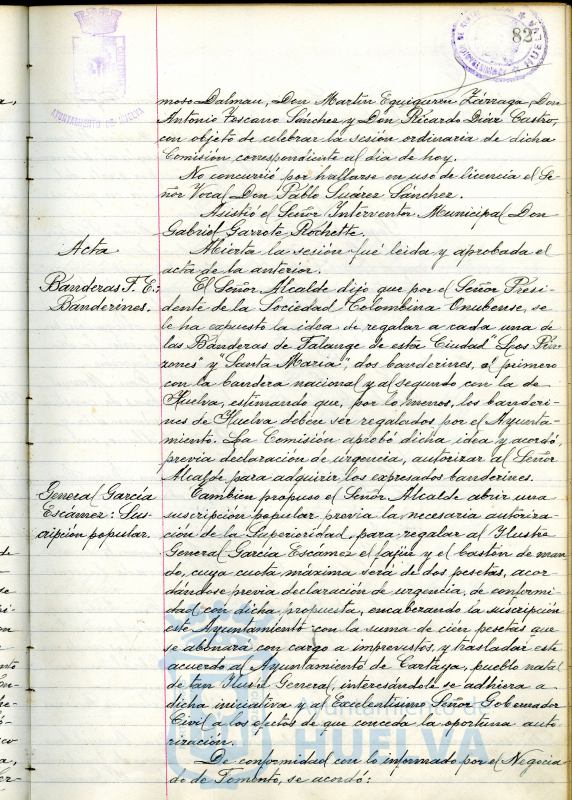 82
AYUNTAMIENTO DE HUELVA
moso Dalmau, Don Martín Eguiguren Zárraga, Don
Antonio Toscano Sánchez y Don Ricardo Díaz Castro,
con objeto de celebrar la sesión ordinaria de dicha
Comisión correspondiente al dia de hoy.
No concurrió por hallarse en uso de licencia el Se-
ñor Vocal Don Pablo Suárez Sánchez.
Asistió el Señor Interventor Municipal Don
Gabriel Garrote Rochette.
Acta
Abierta la sesión fué leida y aprobada el
acta de la anterior.
Banderas F. E.:
Banderines.
El Señor Alcalde dijo que por el Señor Presi-
dente de la Sociedad Colombina Onubense, se
le ha expuesto la idea de regalar a cada una de
las Banderas de Falange de esta Ciudad "Los Pin-
zones" y "Santa Maria", dos banderines, el primero
con la bandera nacional y al segundo con la de
Huelva, estimando que, por lo menos, los banderi-
nes de Huelva deben ser regalados por el Ayunta-
miento. La Comisión aprobó dicha idea y acordó,
previa declaración de urgencia, autorizar al Señor
Alcalde para adquirir los expresados banderines.
General García
Escámez: Sus-
cripción popular.
Tambien propuso el Señor Alcalde abrir una
suscripción popular previa la necesaria autoriza-
ción de la Superioridad, para regalar al Ilustre
General García Escámez el fajín y el bastón de man-
do, cuya cuota máxima será de dos pesetas, acor-
dándose previa declaración de urgencia, de conformi-
dad con dicha propuesta, encabezando la suscripción
este Ayuntamiento con la suma de cien pesetas que
se abonará con cargo a imprevistos, y trasladar este
acuerdo al Ayuntamiento de Cartaya, pueblo natal
de tan Ilustre General, interesándole se adhiera a
dicha iniciativa y al Excelentísimo Señor Gobernador
Civil a los efectos de que conceda la oportuna auto-
rización.
De conformidad con lo informado por el Negocia-
do de Fomento, se acordó:
Ayuntamiento de
HUELVA